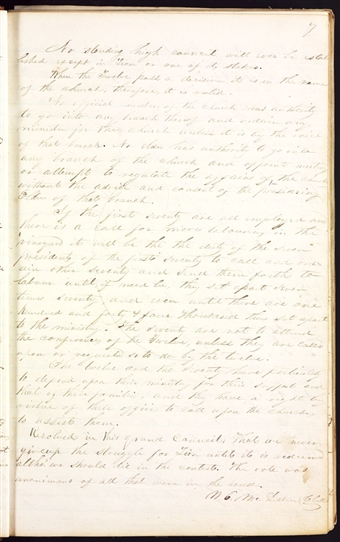 7
No standing high council will ever be estab
lished except in Zion or one of its stakes.
When the Twelve pass a decision it is in the name
of the church therefore it is valid.
No official member of the church has authority
to go into any branch thereof and ordain any
minister for that church unless it is by the voice
of that branch. No elder has authority to go into
any branch of the church and appoint meetings
or attempt to regulate the affairs of the church
without the advice and consent of the presiding
Elder of that branch.
If the first seventy are all employed and
there is a call for more labourers in the
vineyard it will be the duty of the seven
presidents of the first seventy to call and ordain
other seventy and send them forth to
labour until if need be, they set apart seven
times seventy, and even until there are one
hundred and forty & four thousand thus set apart
to the ministry. The seventy are not to attend
the conferences of the Twelve, unless they are called
upon or requested so to do by the twelve.
The Twelve and the Seventy have particularly
to depend upon their ministry for their support and
that of their families and they have a right to
virtue of their offices to call upon the churches
to assist them.
Resolved in this grand Council that we never
give up the struggle for Zion until it is redeemed
although we should die in the contest. The vote was
unanimous of all that were in the house.
W. E. Mc Lellin Clerk